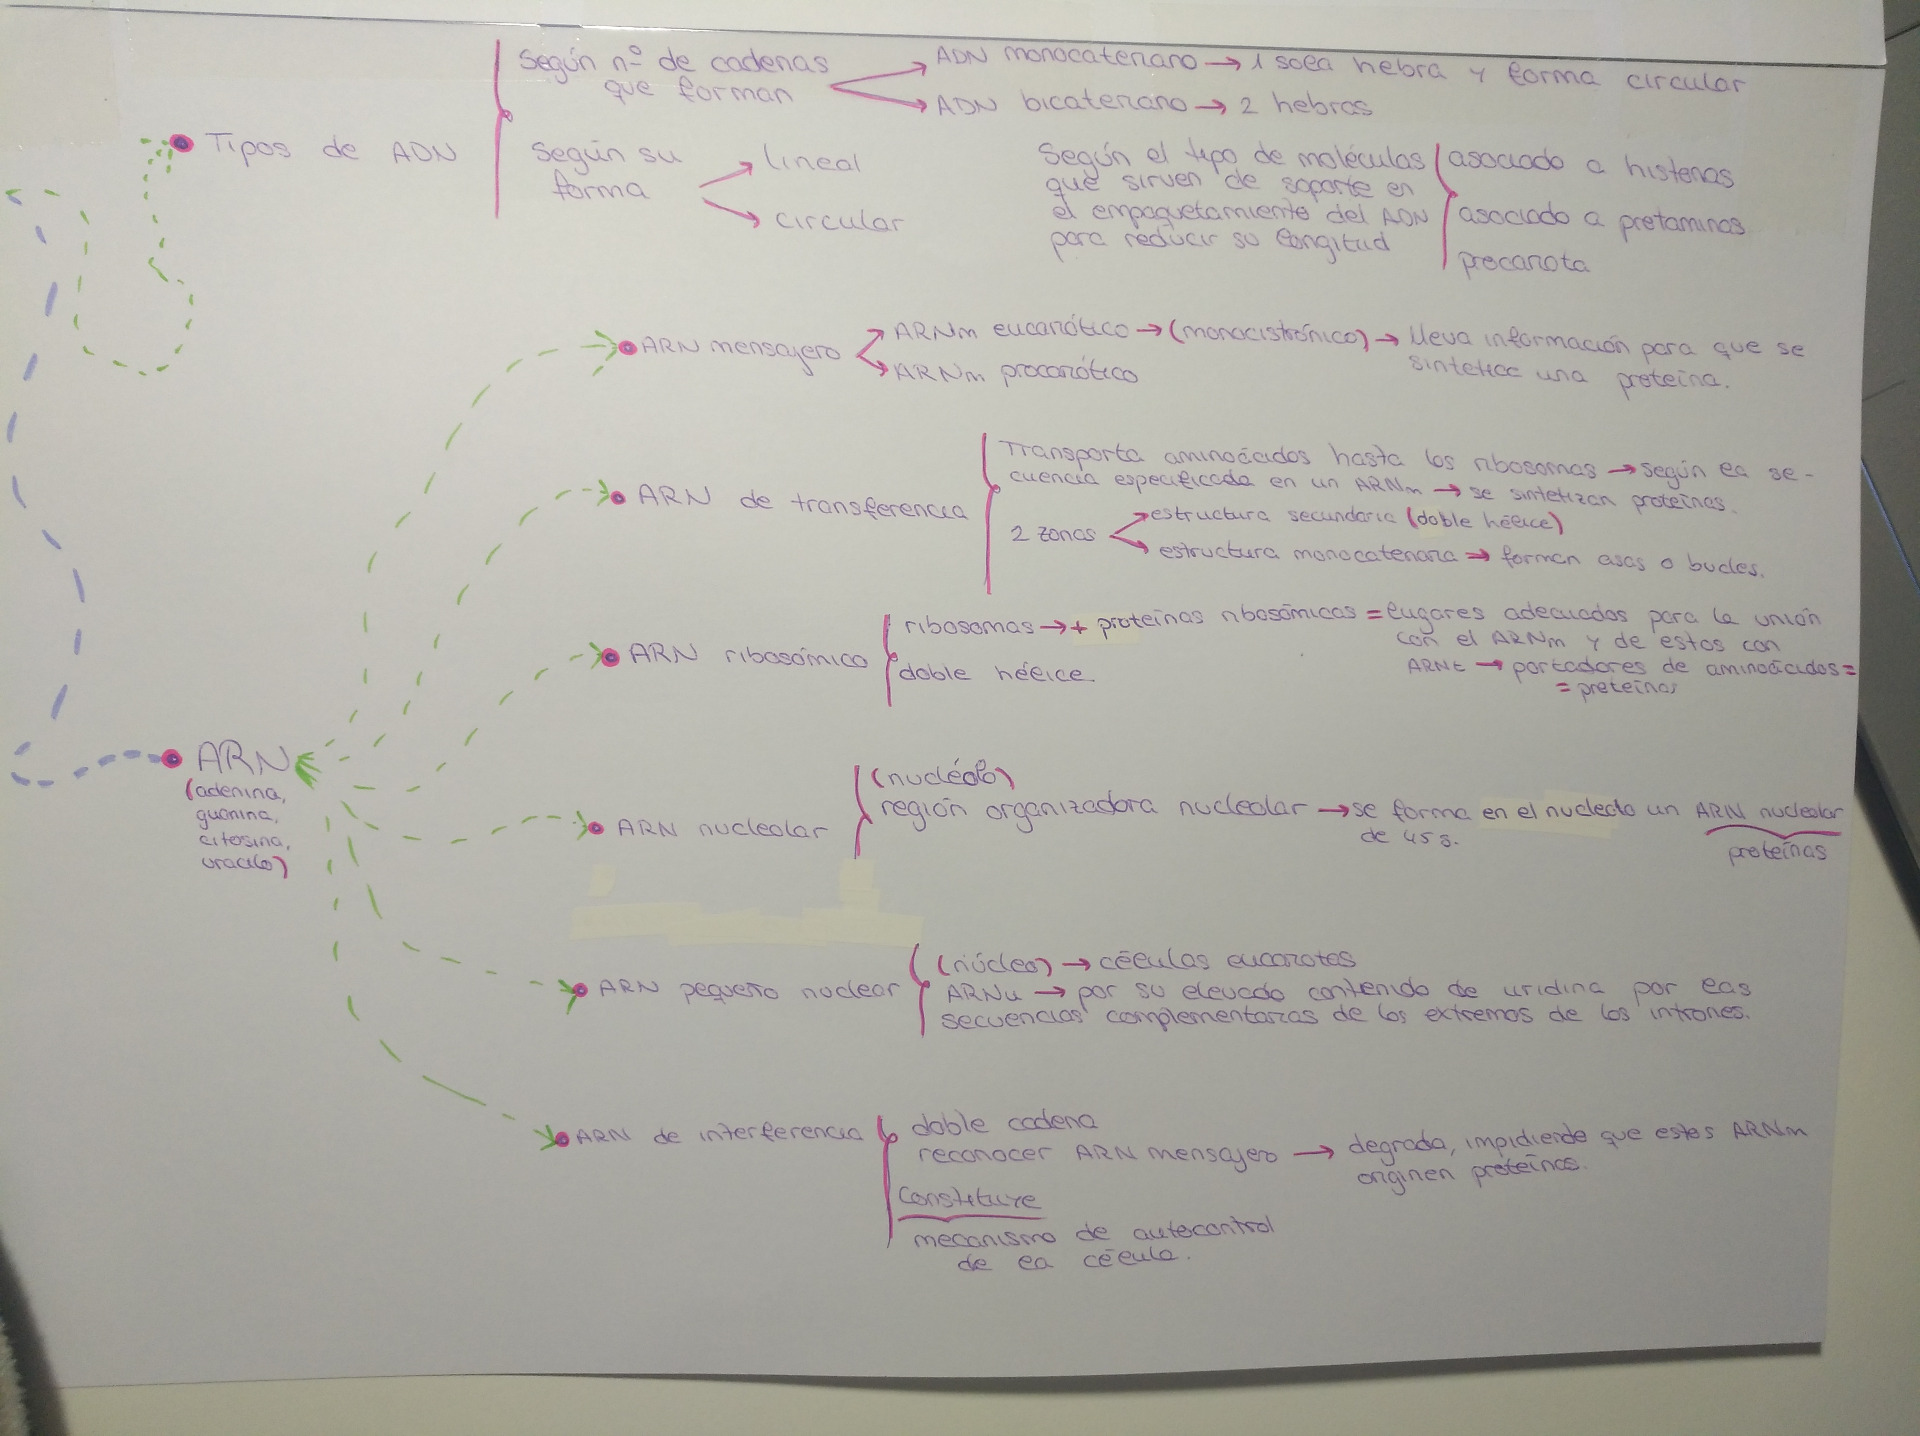 Según nº de cadenas
que forman
ADN monocatenario → 1 sola hebra y forma circular
ADN bicatenario → 2 hebras
Tipos de ADN
Según su
forma
lineal
circular
Según el tipo de moléculas
que sirven de soporte en
el empaquetamiento del ADN
para reducir su longitud
asociado a histonas
asociado a protaminas
procariota
ARN mensajero
ARNm eucariótico → (monocistrónico) → lleva información para que se
sintetice una proteína.
ARNm procariótico
ARN de transferencia
Transporta aminoácidos hasta los ribosomas → según la se-
cuencia especificada en un ARNm → se sintetizan proteínas.
2 zonas
estructura secundaria (doble hélice)
estructura monocatenaria → forman asas o bucles.
ARN ribosómico
ribosomas → + proteínas ribosómicas = lugares adecuados para la unión
con el ARNm y de estos con
ARNt → portadores de aminoácidos =
= proteínas
doble hélice
ARN
(adenina,
guanina,
citosina,
uracilo)
ARN nucleolar
(nucléolo)
región organizadora nucleolar → se forma en el nucleolo un ARN nucleolar
de 45 s.
proteínas
ARN pequeño nuclear
(núcleo) → células eucariotas
ARNu → por su elevado contenido de uridina por las
secuencias complementarias de los extremos de los intrones.
ARN de interferencia
doble cadena
reconocer ARN mensajero → degrada, impidiendo que estos ARNm
originen proteínas.
Constituye
mecanismo de autocontrol
de la célula.